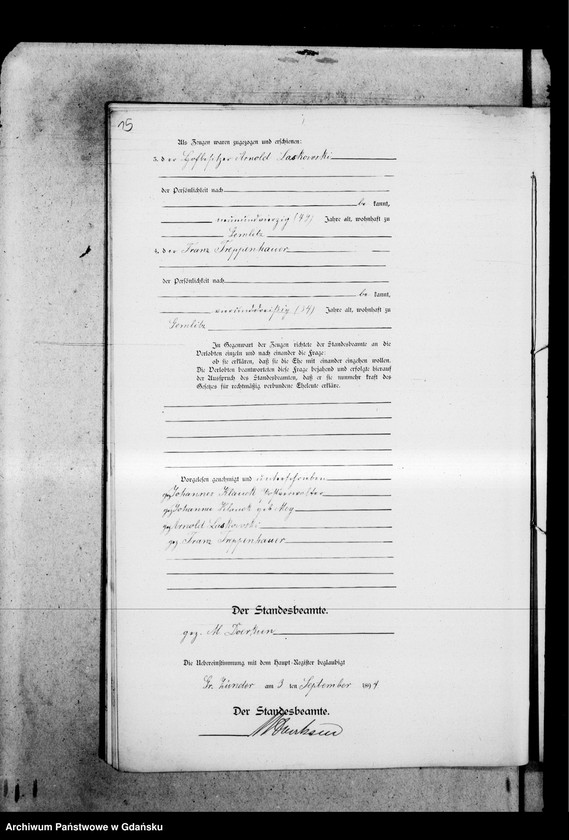 15
Als Zeugen waren zugezogen und erschienen:
3. der Hofbesitzer Arnold Laskowski
der Persönlichkeit nach
be kannt,
neunundvierzig (49) Jahre alt, wohnhaft zu
Gemlitz
4. der Franz Treppenhauer
der Persönlichkeit nach
be kannt,
Jahre alt, wohnhaft zu
Gemlitz
In Gegenwart der Zeugen richtete der Standesbeamte an die
Verlobten einzeln und nach einander die Frage:
ob sie erklären, daß sie die Ehe mit einander eingehen wollen.
Die Verlobten beantworteten diese Frage bejahend und erfolgte hierauf
der Ausspruch des Standesbeamten, daß er sie nunmehr kraft des
Gesetzes für rechtmäßig verbundene Eheleute erkläre.
Vorgelesen genehmigt und unterschrieben
gez Johannes Klauck
gez Johanna Klauck geb.
gez Arnold Laskowski
gez Franz Treppenhauer
Der Standesbeamte.
gez. M Doerksen
Die Uebereinstimmung mit dem Haupt-Register beglaubigt
Gr. Zünder am 3 ten September 1894
Der Standesbeamte.
Doerksen
Archiwum Państwowe w Gdańsku